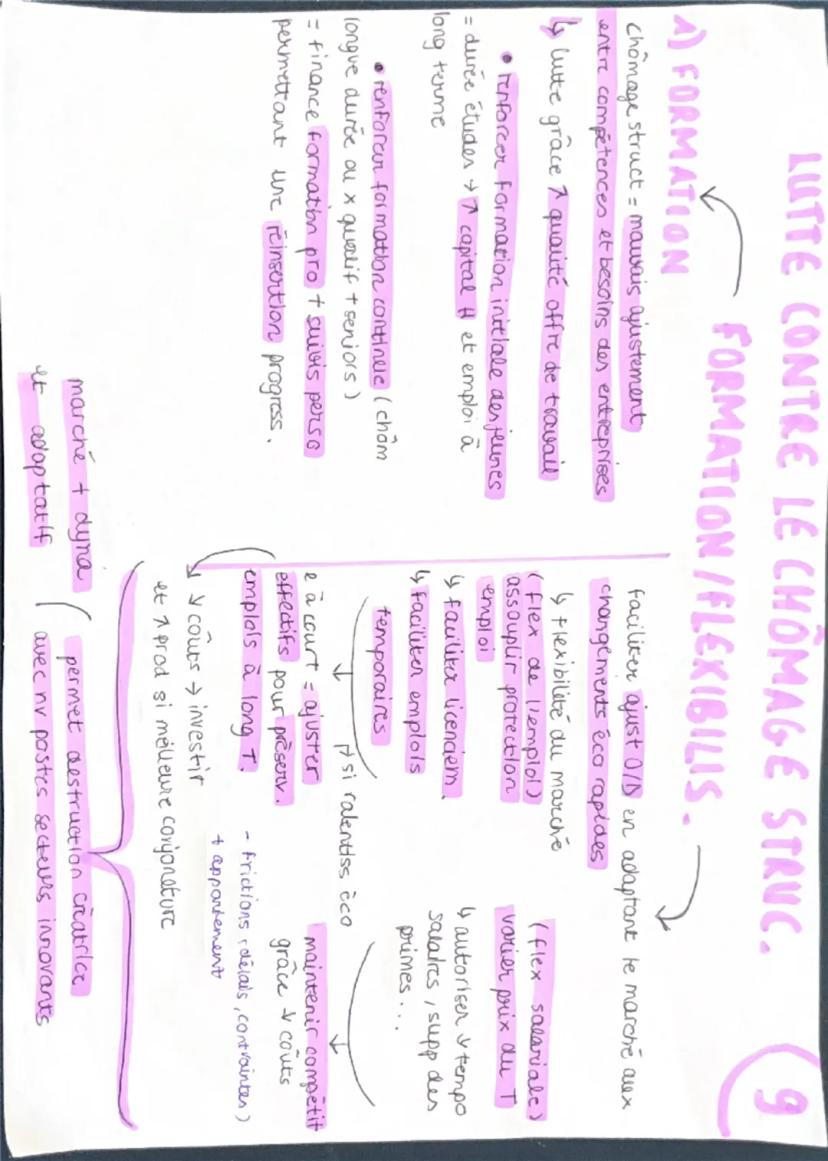 LUTTE CONTRE LE CHÔMAGE STRUC.
9
FORMATION/FLEXIBILIS.
1) FORMATION
chômage struct = mauvais ajustement
entre compétences et besoins des entreprises
↳ lutte grâce ↗ qualité offre de travail
• renforcer formation initiale des jeunes
= durée études → ↗ capital H et emploi à
long terme
• renforcer formation continue (chôm
longue durée ou × qualif + seniors)
= finance formation pro + suivis perso
permettant une réinsertion progress.
faciliter ajust O/D en adaptant le marché aux
changements éco rapides
↳ flexibilité du marché
(flex de l'emploi)
assouplir protection
emploi
↳ faciliter licenciem.
↳ faciliter emplois
temporaires
(flex salariale)
varier prix du T
↳ autoriser ↓ tempo
salaires, supp des
primes...
si ralentiss éco
e à court = ajuster
effectifs pour préserv.
emplois à long T.
maintenir compétit
grâce ↓ coûts
- frictions, délais, contraintes)
+ appartement
↘ ↓ coûts → investir
et ↗ prod si meilleure conjoncture
permet destruction créatrice
avec nv postes secteurs innovants
marché + dyna
et adaptatif